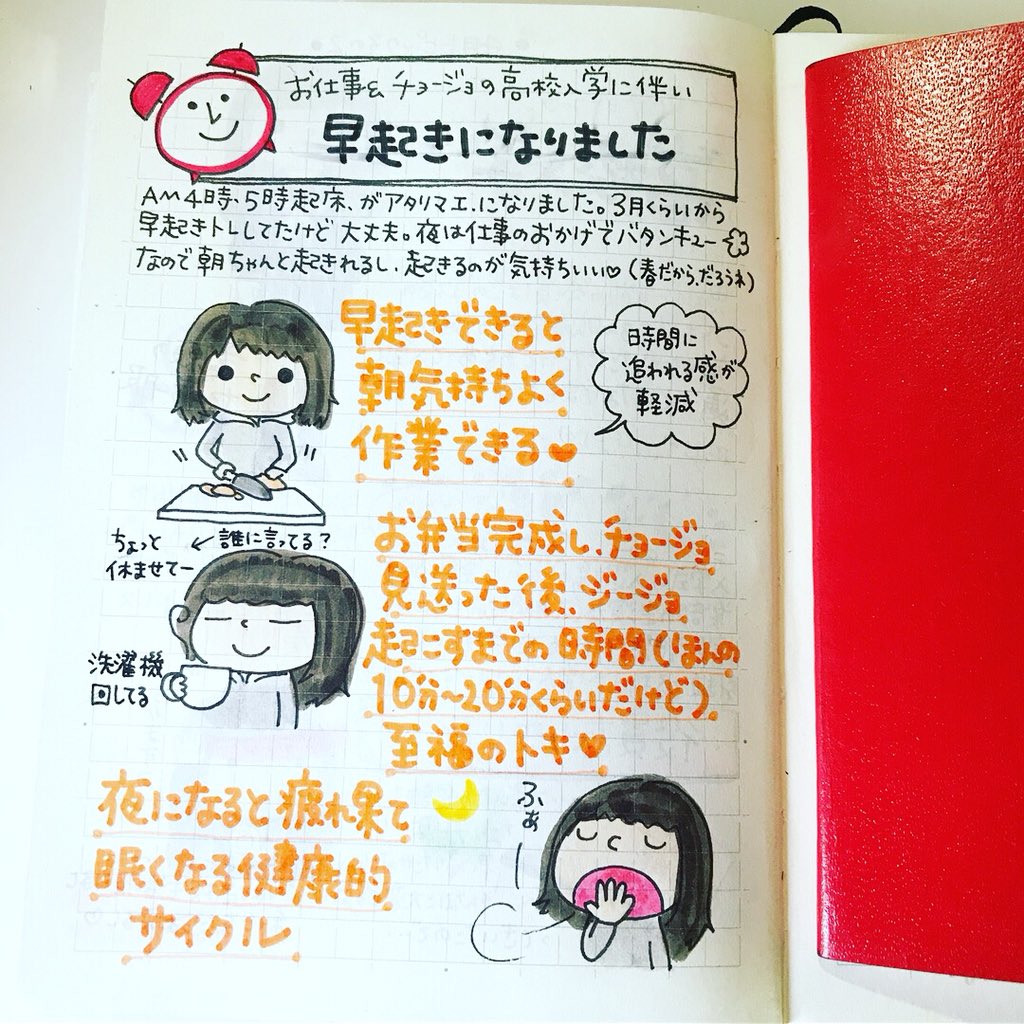 お仕事& チョージョの高校入学に伴い
早起きになりました
AM4時、5時起床、がアタリマエ、になりました。3月くらいから
早起きトレしてたけど 大丈夫。夜は仕事のおかげでバタンキュー
なので朝ちゃんと起きれるし、起きるのが気持ちいい♡(春だから、だろうね)
早起きできると
朝気持ちよく
作業できる♥
時間に
追われる感が
軽減
ちょっと
休ませてー
← 誰に言ってる?
洗濯機
回してる
お弁当完成し、チョージョ
見送った後、ジージョ
起こすまでの時間(ほんの
10分〜20分くらいだけど)
至福のトキ♥
夜になると疲れ果て
眠くなる健康的
サイクル
ふぁー